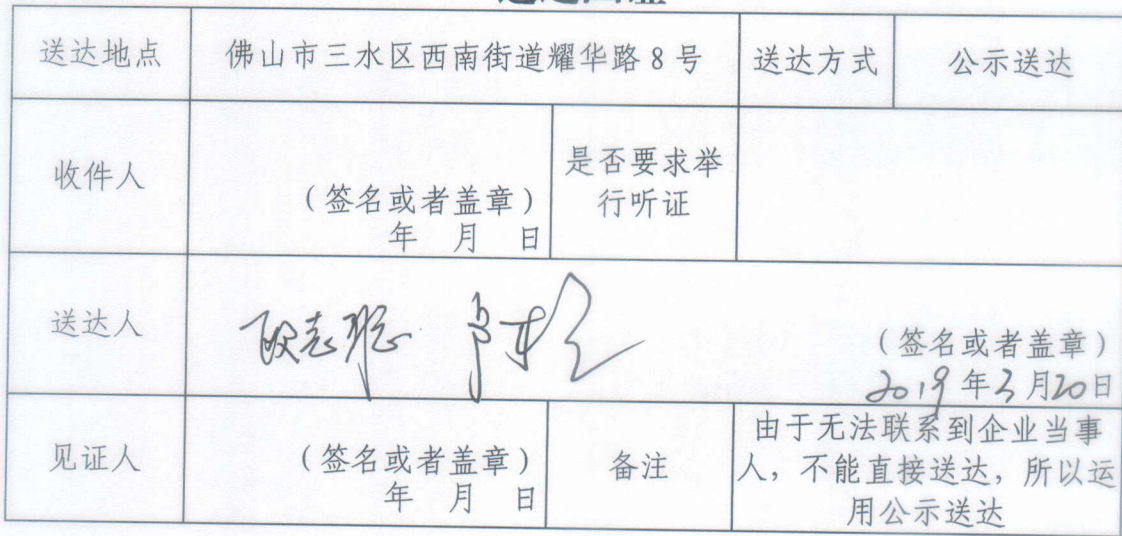 送达地点 佛山市三水区西南街道耀华路8号 送达方式 公示送达
收件人
(签名或者盖章)
年 月 日
是否要求举
行听证
送达人
欧志聪
(签名或者盖章)
2019年3月20日
见证人
(签名或者盖章)
年 月 日
备注
由于无法联系到企业当事
人,不能直接送达,所以运
用公示送达